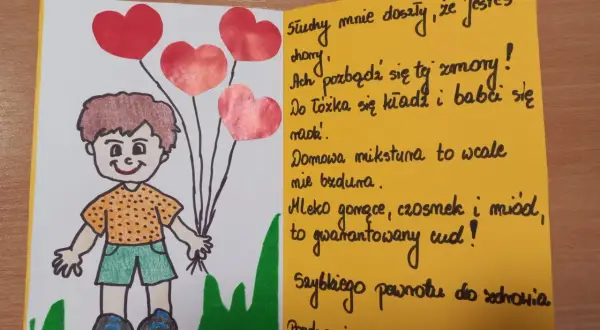 Słuchy mnie doszły, że jesteś
chory,
Ach pozbądź się tej zmory!
Do łóżka się kładź i babci się
radź.
Domowa mikstura to wcale
nie bzdura.
Mleko gorące, czosnek i miód,
to gwarantowany cud!
Szybkiego powrotu do zdrowia